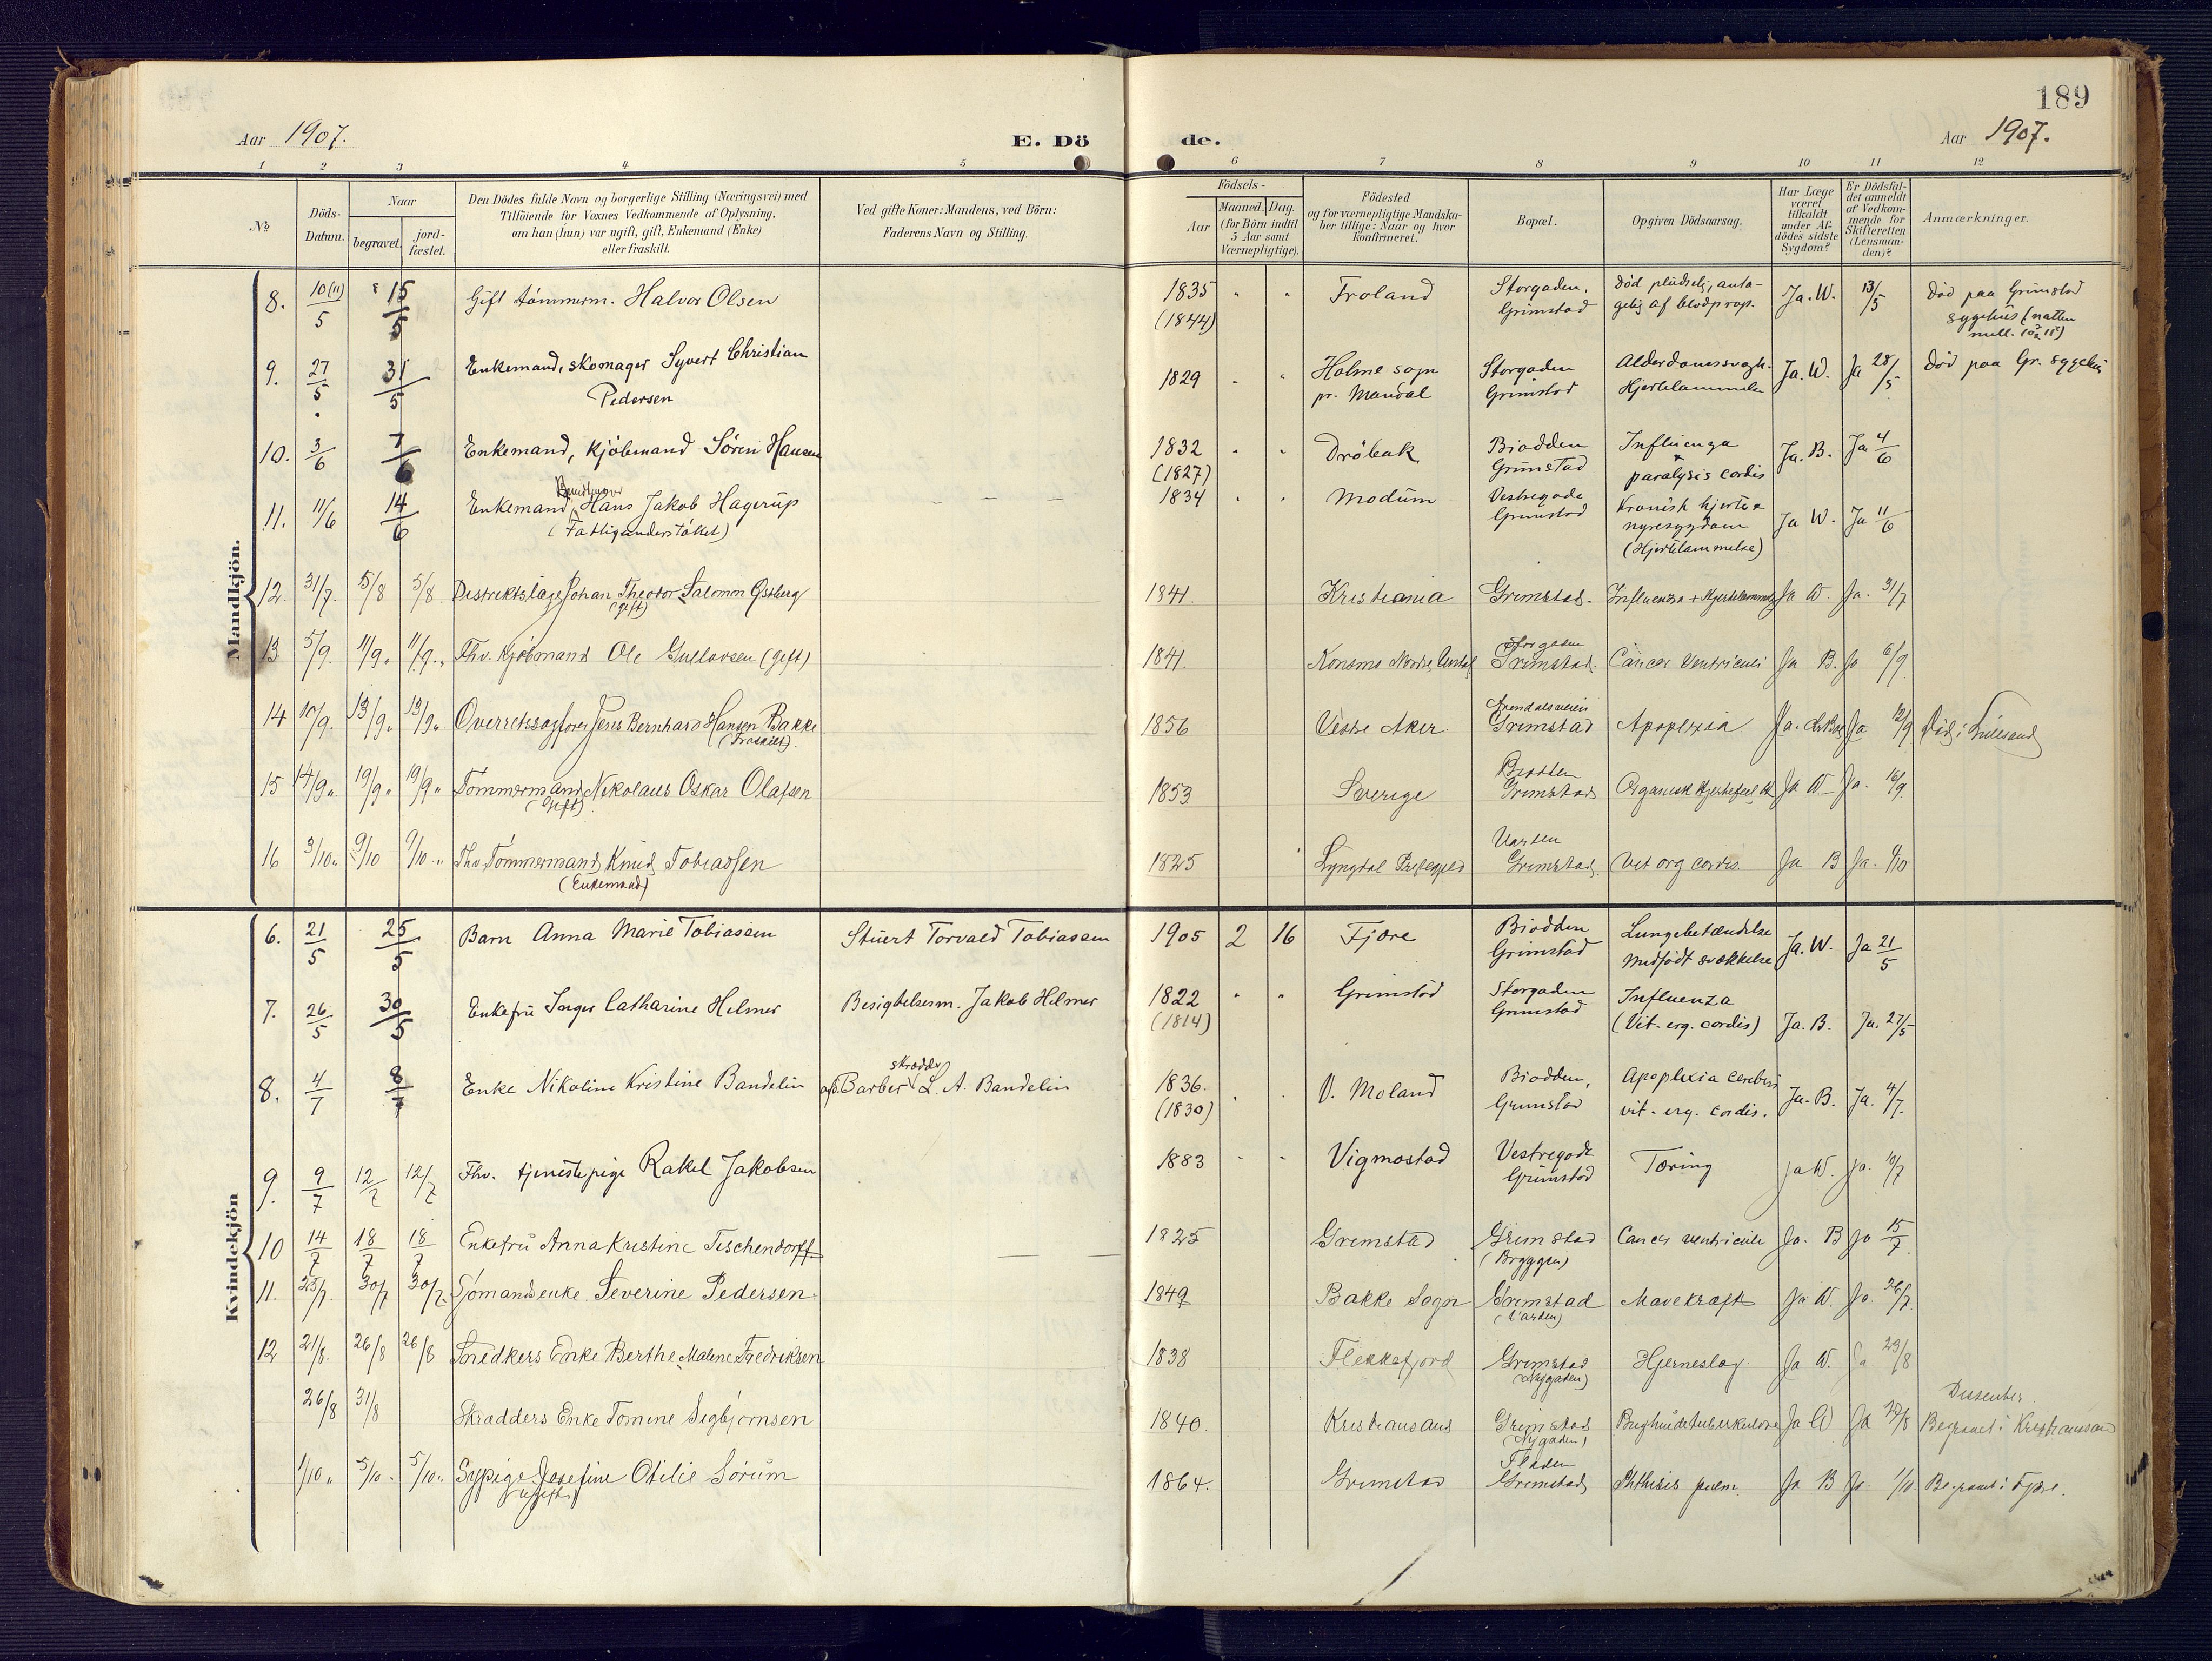 189
Aar 1907.
E. Dö
de.
Aar 1907.
1 2 3 4 5 6 7 8 9 10 11 12
No
Döds-
Datum.
Naar
begravet.
jord-
fæstet.
Den Dödes fulde Navn og borgerlige Stilling (Næringsvei) med
Tilföiende for Voxnes Vedkommende af Oplysning,
om han (hun) var ugift, gift, Enkemand (Enke)
eller fraskilt.
Ved gifte Koner: Mandens, ved Börn:
Faderens Navn og Stilling.
Födsels-
Aar
Maaned. Dag.
(for Börn indtil
5 Aar samt
Værnepligtige).
Födested
og for værnepligtige Mandska-
ber tillige: Naar og hvor
konfirmeret.
Bopæl.
Opgiven Dödsaarsag.
Har Læge
været
tilkaldt
under Af-
dödes sidste
Sygdom?
Er Dödsfal-
det anmeldt
af Vedkom-
mende for
Skifteretten
(Lensman-
den)?
Anmærkninger.
Mandkjön.
8. 10(11)/5 15/5 Gift tömmerm. Halvor Olsen 1835 (1844) Froland Storgaden, Grimstad Död pludselig, anta-
gelig af blodprop. Ja. W. 13/5 Död paa Grimstad
sygehus (natten
mell. 10 & 11)
9. 27/5 31/5 Enkemand, skomager Syvert Christian
Pedersen 1829 Holme sogn
pr. Mandal Storgaden
Grimstad Alderdomssvagh.
Hjertelammelse Ja. W. Ja 28/5 Död paa Gr. sygehus
10. 3/6 7/6 Enkemand, kjöbmand Sören Hansen 1832 (1827) Dröbak Biodden
Grimstad Influenza
paralysis cordis Ja. B. Ja 4/6
11. 11/6 14/6 Enkemand Hans Jakob Hagerup
(Fattigunderstöttet) 1834 Modum Vestregade
Grimstad Kronisk hjerte &
nyresygdom
(Hjertelammelse) Ja W. Ja 11/6
12. 31/7. 5/8 5/8. Distriktslæge Johan Theodor Salomon Östberg
(gift) 1841. Kristiania Grimstad. Influenza + Hjertelammelse Ja W. Ja. 31/7
13 5/9. 11/9. 11/9. Fhv. Kjöbmand Ole Gullovsen (gift) 1841. Konsmo Nordre Undal Storgaden
Grimstad. Cancer Ventriculi Ja B. Ja 6/9
14 10/9. 13/9. 13/9. Overretssagförer Jens Bernhard Hansen Bakke
(Fraskilt) 1856 Vestre Aker. Arendalsveien
Grimstad Apoplexia Ja. Ja 12/9 Död i Lillesand
15 14/9. 19/9. 19/9. Tömmermand Nikolaus Oskar Olafsen
(Gift) 1853 Sverige Biodden
Grimstad Organisk Hjertefeil Ja W Ja. 16/9.
16 3/10. 9/10 9/10. Fhv. Tömmermand Knud Tobiassen
(Enkemand) 1825 Lyngdal Præstegjeld Varden
Grimstad. Vit org cordis. Ja B Ja. 4/10
Kvindekjön
6. 21/5 25/5 Barn Anna Marie Tobiasen Stuert Torvald Tobiasen 1905 2 16 Fjære Biodden
Grimstad Lungebetændelse
Medfödt svækkelse Ja. W. Ja 21/5
7. 26/5 30/5 Enkefru Inger Catharine Helmer Besigtelsesm. Jakob Helmer 1822 (1814) Grimstad Storgaden
Grimstad Influenza
(Vit. org. cordis) Ja. B. Ja. 27/5
8. 4/7 8/7 Enke Nikoline Kristine Bandelin afd. Barber skrædder L. A. Bandelin 1836. (1830) V. Moland Biodden,
Grimstad Apoplexia cerebri
vit. org. cordis. Ja. B. Ja. 4/7.
9. 9/7 12/7 12/7 Fhv. tjenestepige Rakel Jakobsen 1883 Vigmostad Vestregade
Grimstad Tæring Ja W. Ja. 10/7
10 14/7 18/7 18/7 Enkefru Anna Kristine Teschendorff 1825 Grimstad Grimstad
(Bryggen) Cancer ventriculi Ja. B Ja 15/7
11. 25/7. 30/7 30/7. Sjömandsenke Severine Pedersen. 1849 Bakke Sogn Grimstad
(Varden) Mavekræft Ja W. Ja. 26/7.
12 21/8. 26/8 26/8 Snedkers Enke Berthe Malene Fredriksen 1838 Flekkefjord Grimstad
(Nygaden) Hjerneslag. Ja W. Ja 23/8
26/8 31/8 Skrædders Enke Tomine Sigbjörnsen 1840. Kristiansand Grimstad
(Nygaden) Bughindetuberkulose Ja W Ja 27/8 Dissenter.
Begravet i Kristiansand
1/10. 5/10. 5/10. Sypige Josefine Otilie Sörum
(ugift) 1864. Grimstad Fladen
Grimstad Phthisis pulm. Ja B Ja. 1/10 Begravet i Fjære.